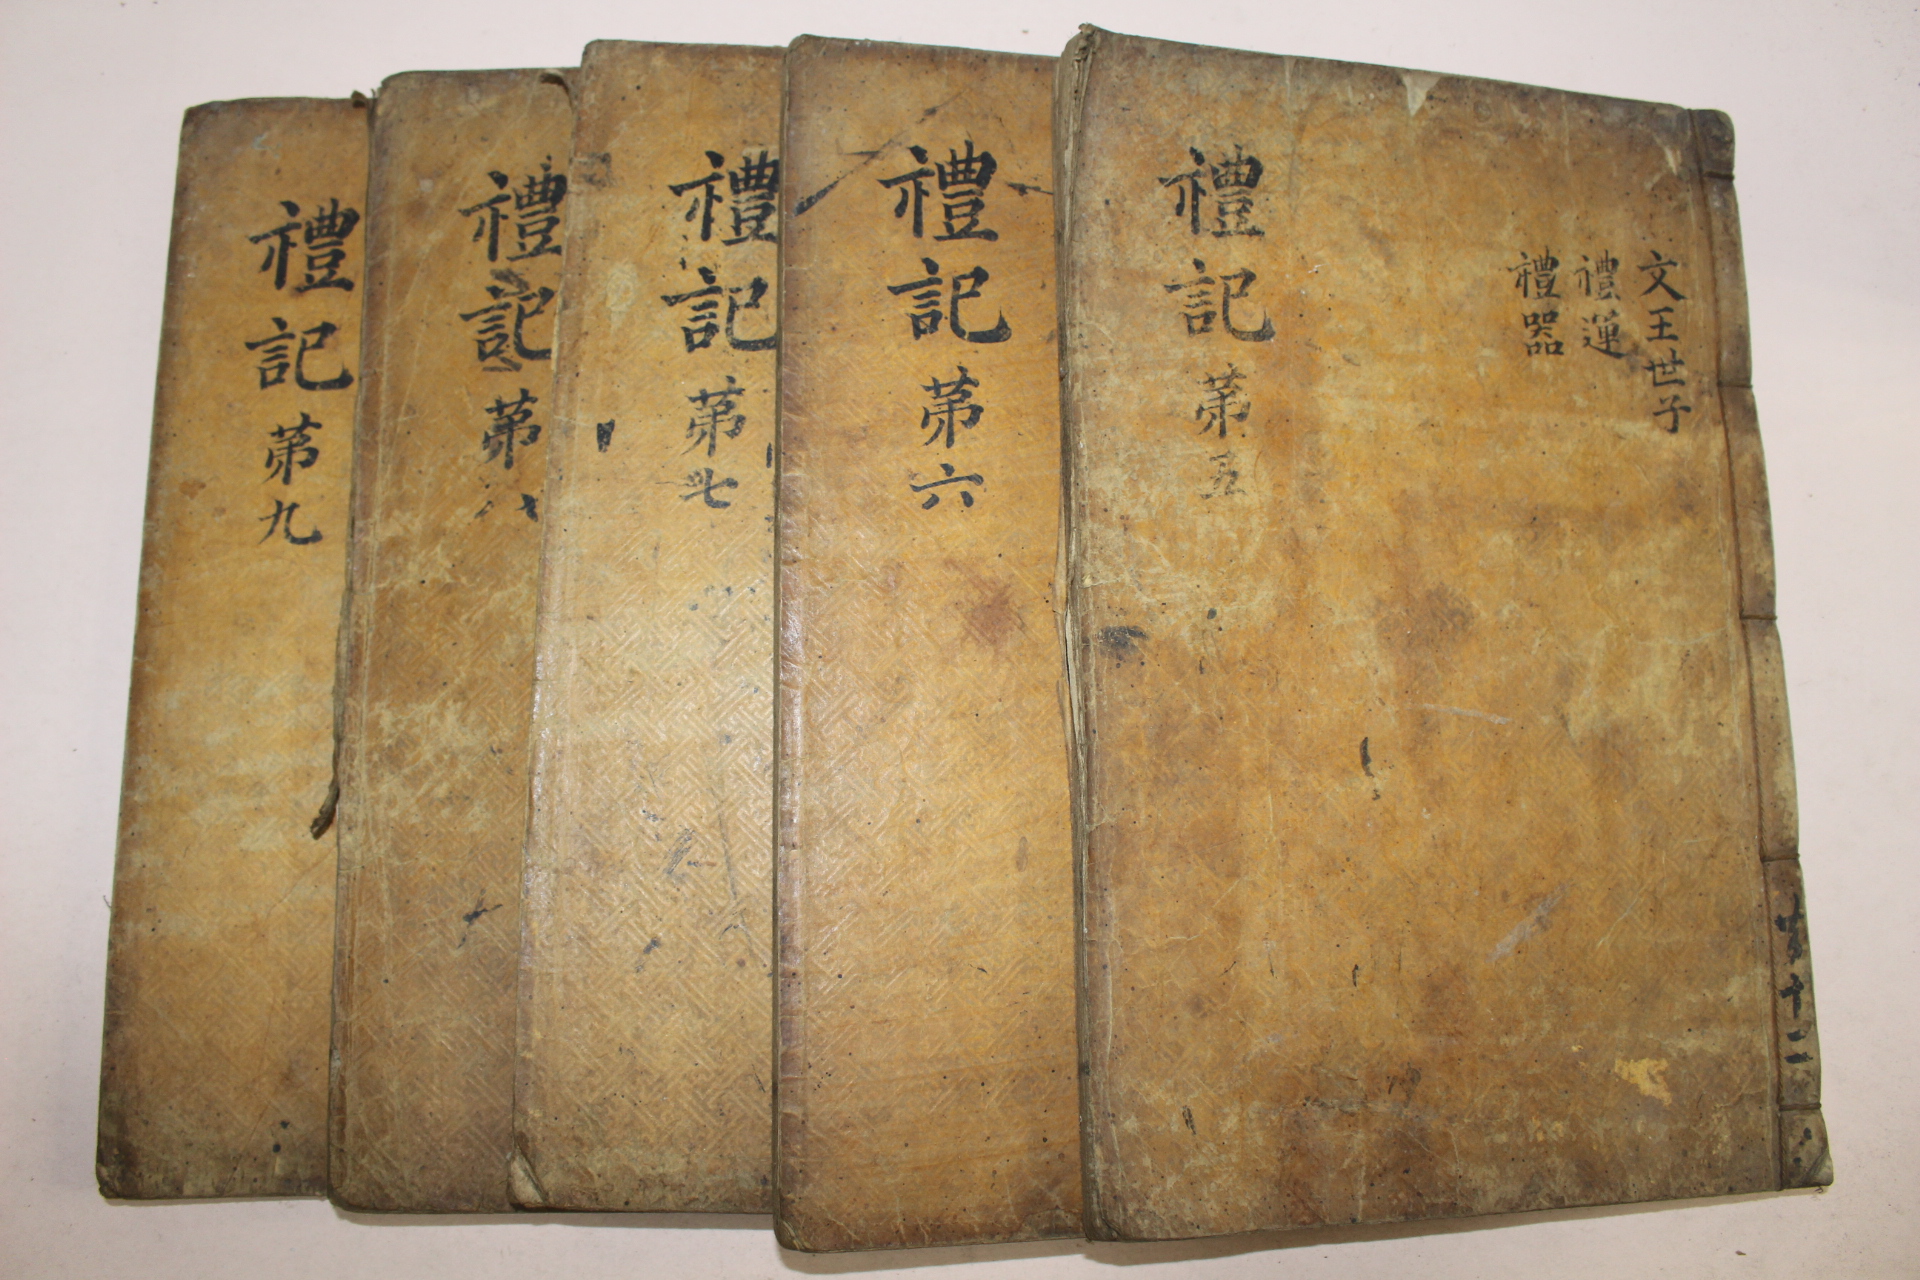 文王世子
禮運
禮器
禮記第五
禮記第六
禮記第七
禮記第八
禮記第九
十二